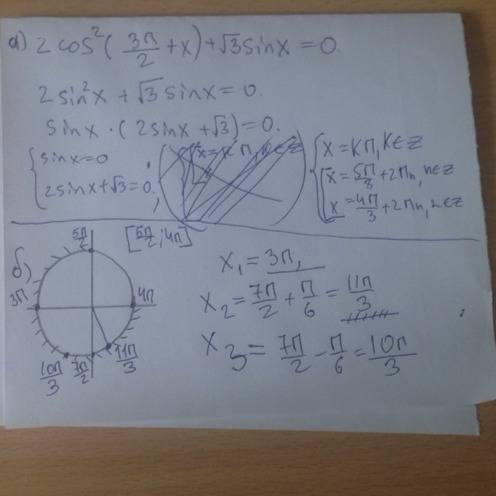 а) 2 cos²(3π/2 + x) + √3 sinx = 0.
2 sin²x + √3 sinx = 0.
sinx · (2sinx + √3) = 0.
{ sinx = 0
2sinx + √3 = 0,
{ x = Kπ, K∈Z
[ x = 5π/3 + 2πn, n∈Z
x = 4π/3 + 2πn, n∈Z
б) [5π/2; 4π]
5π/2
3π
4π
10π/3
7π/2
11π/3
x₁ = 3π,
x₂ = 7π/2 + π/6 = 11π/3
x₃ = 7π/2 − π/6 = 10π/3